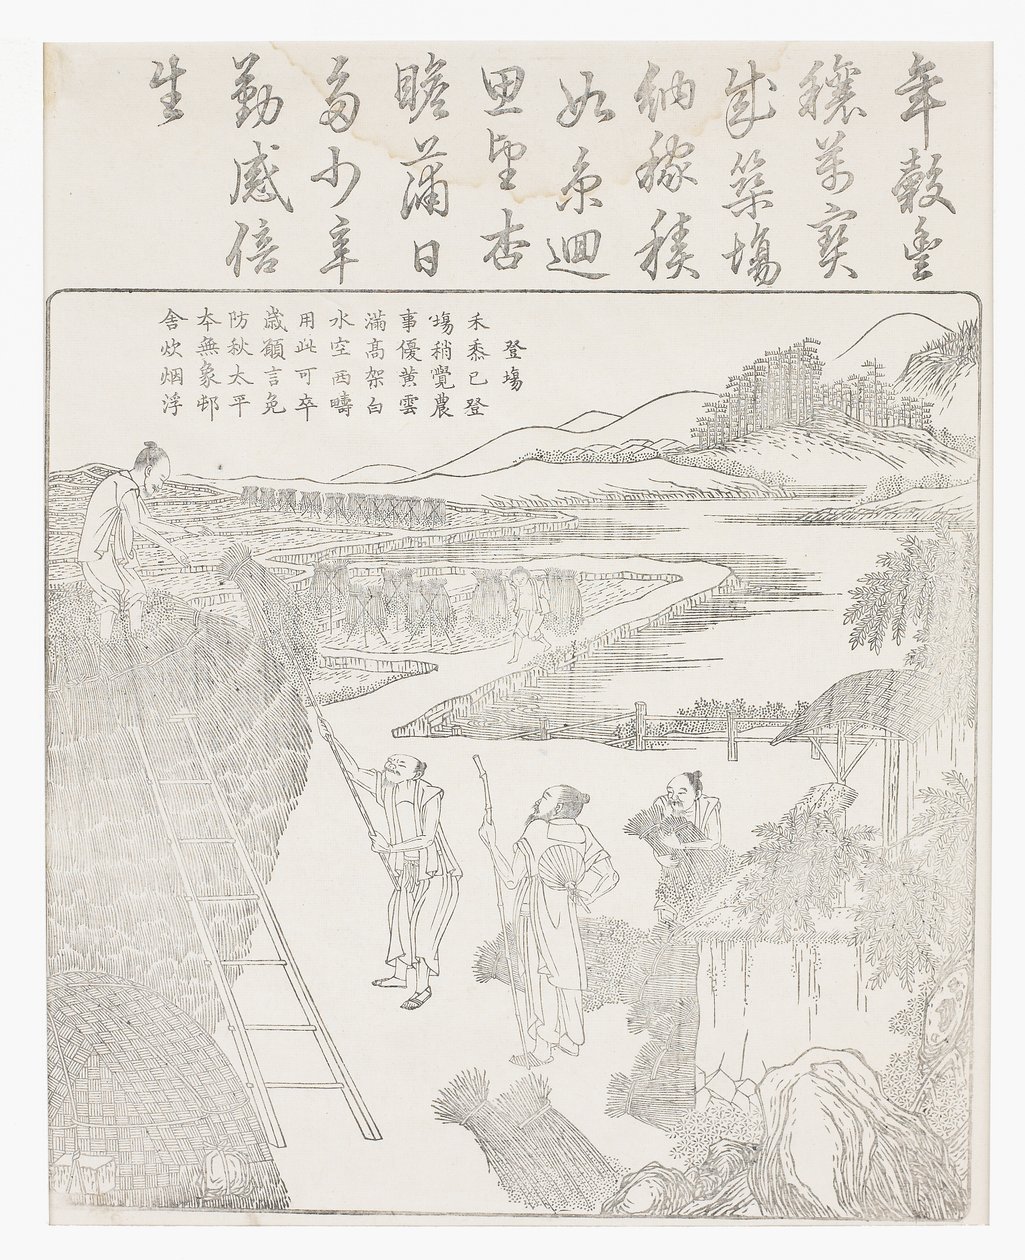 年穀豐
穰萬寶
成築塲
納稼積
如京迴
思望杏
瞻蒲日
多少辛
勤感倍
生
登塲
禾黍已登
塲稍覺農
事優黃雲
滿高架白
水空西疇
用此可卒
歲願言免
防秋太平
本無象邨
舍炊烟浮